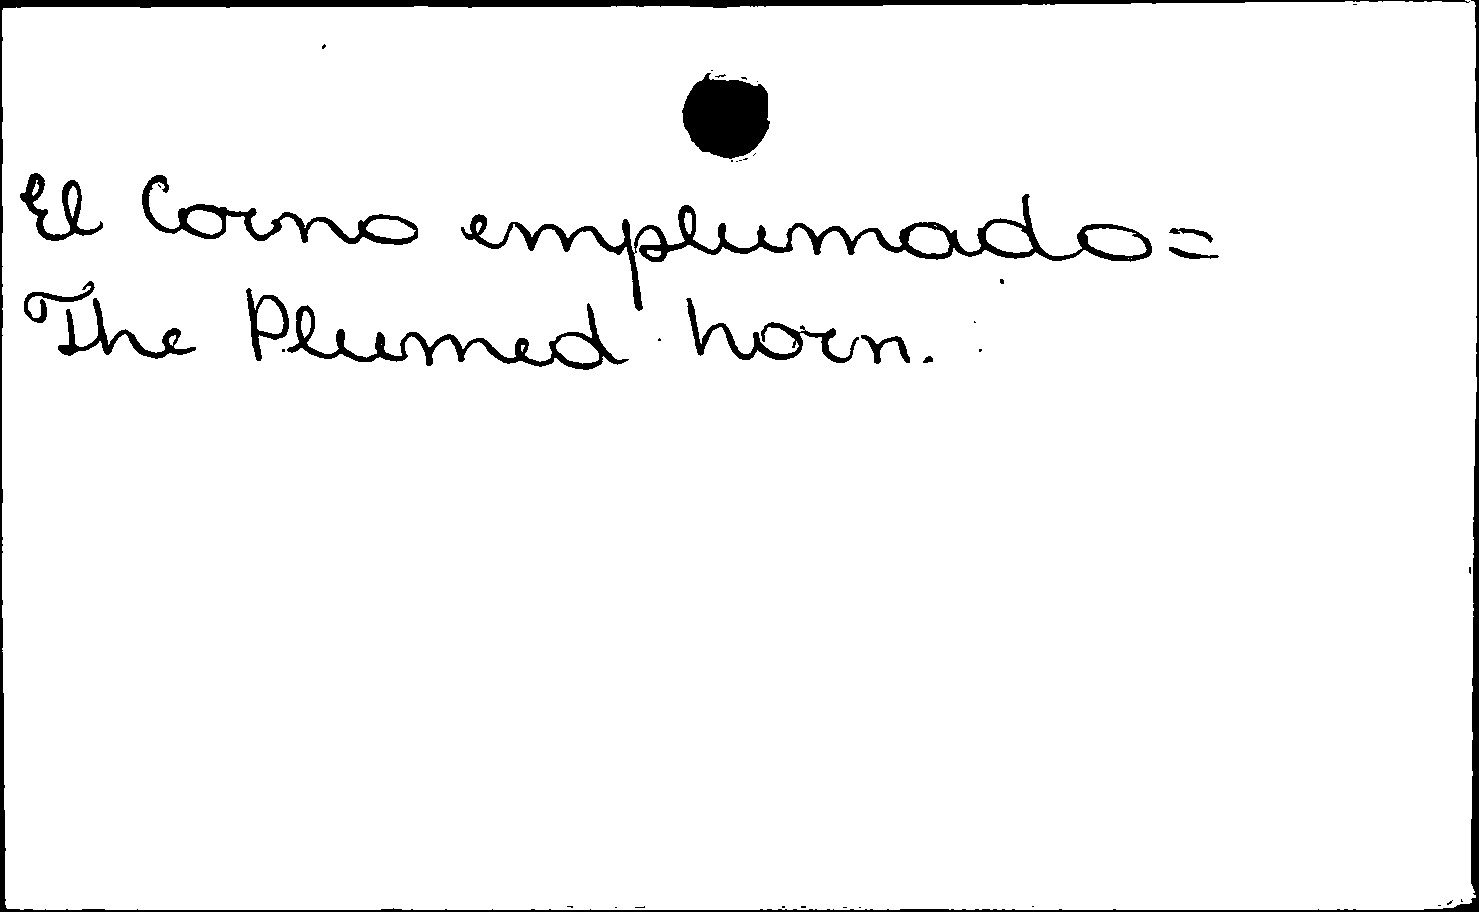 El Corno emplumado=
The Plumed horn.